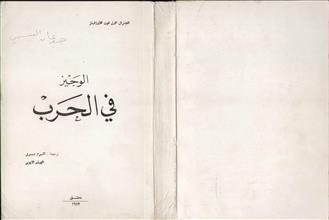 الجنرال كارل فون كلاوزفيتز
الوجيز
في الحرب
ترجمة : أكرم ديري
الهيثم الأيوبي
دمشق